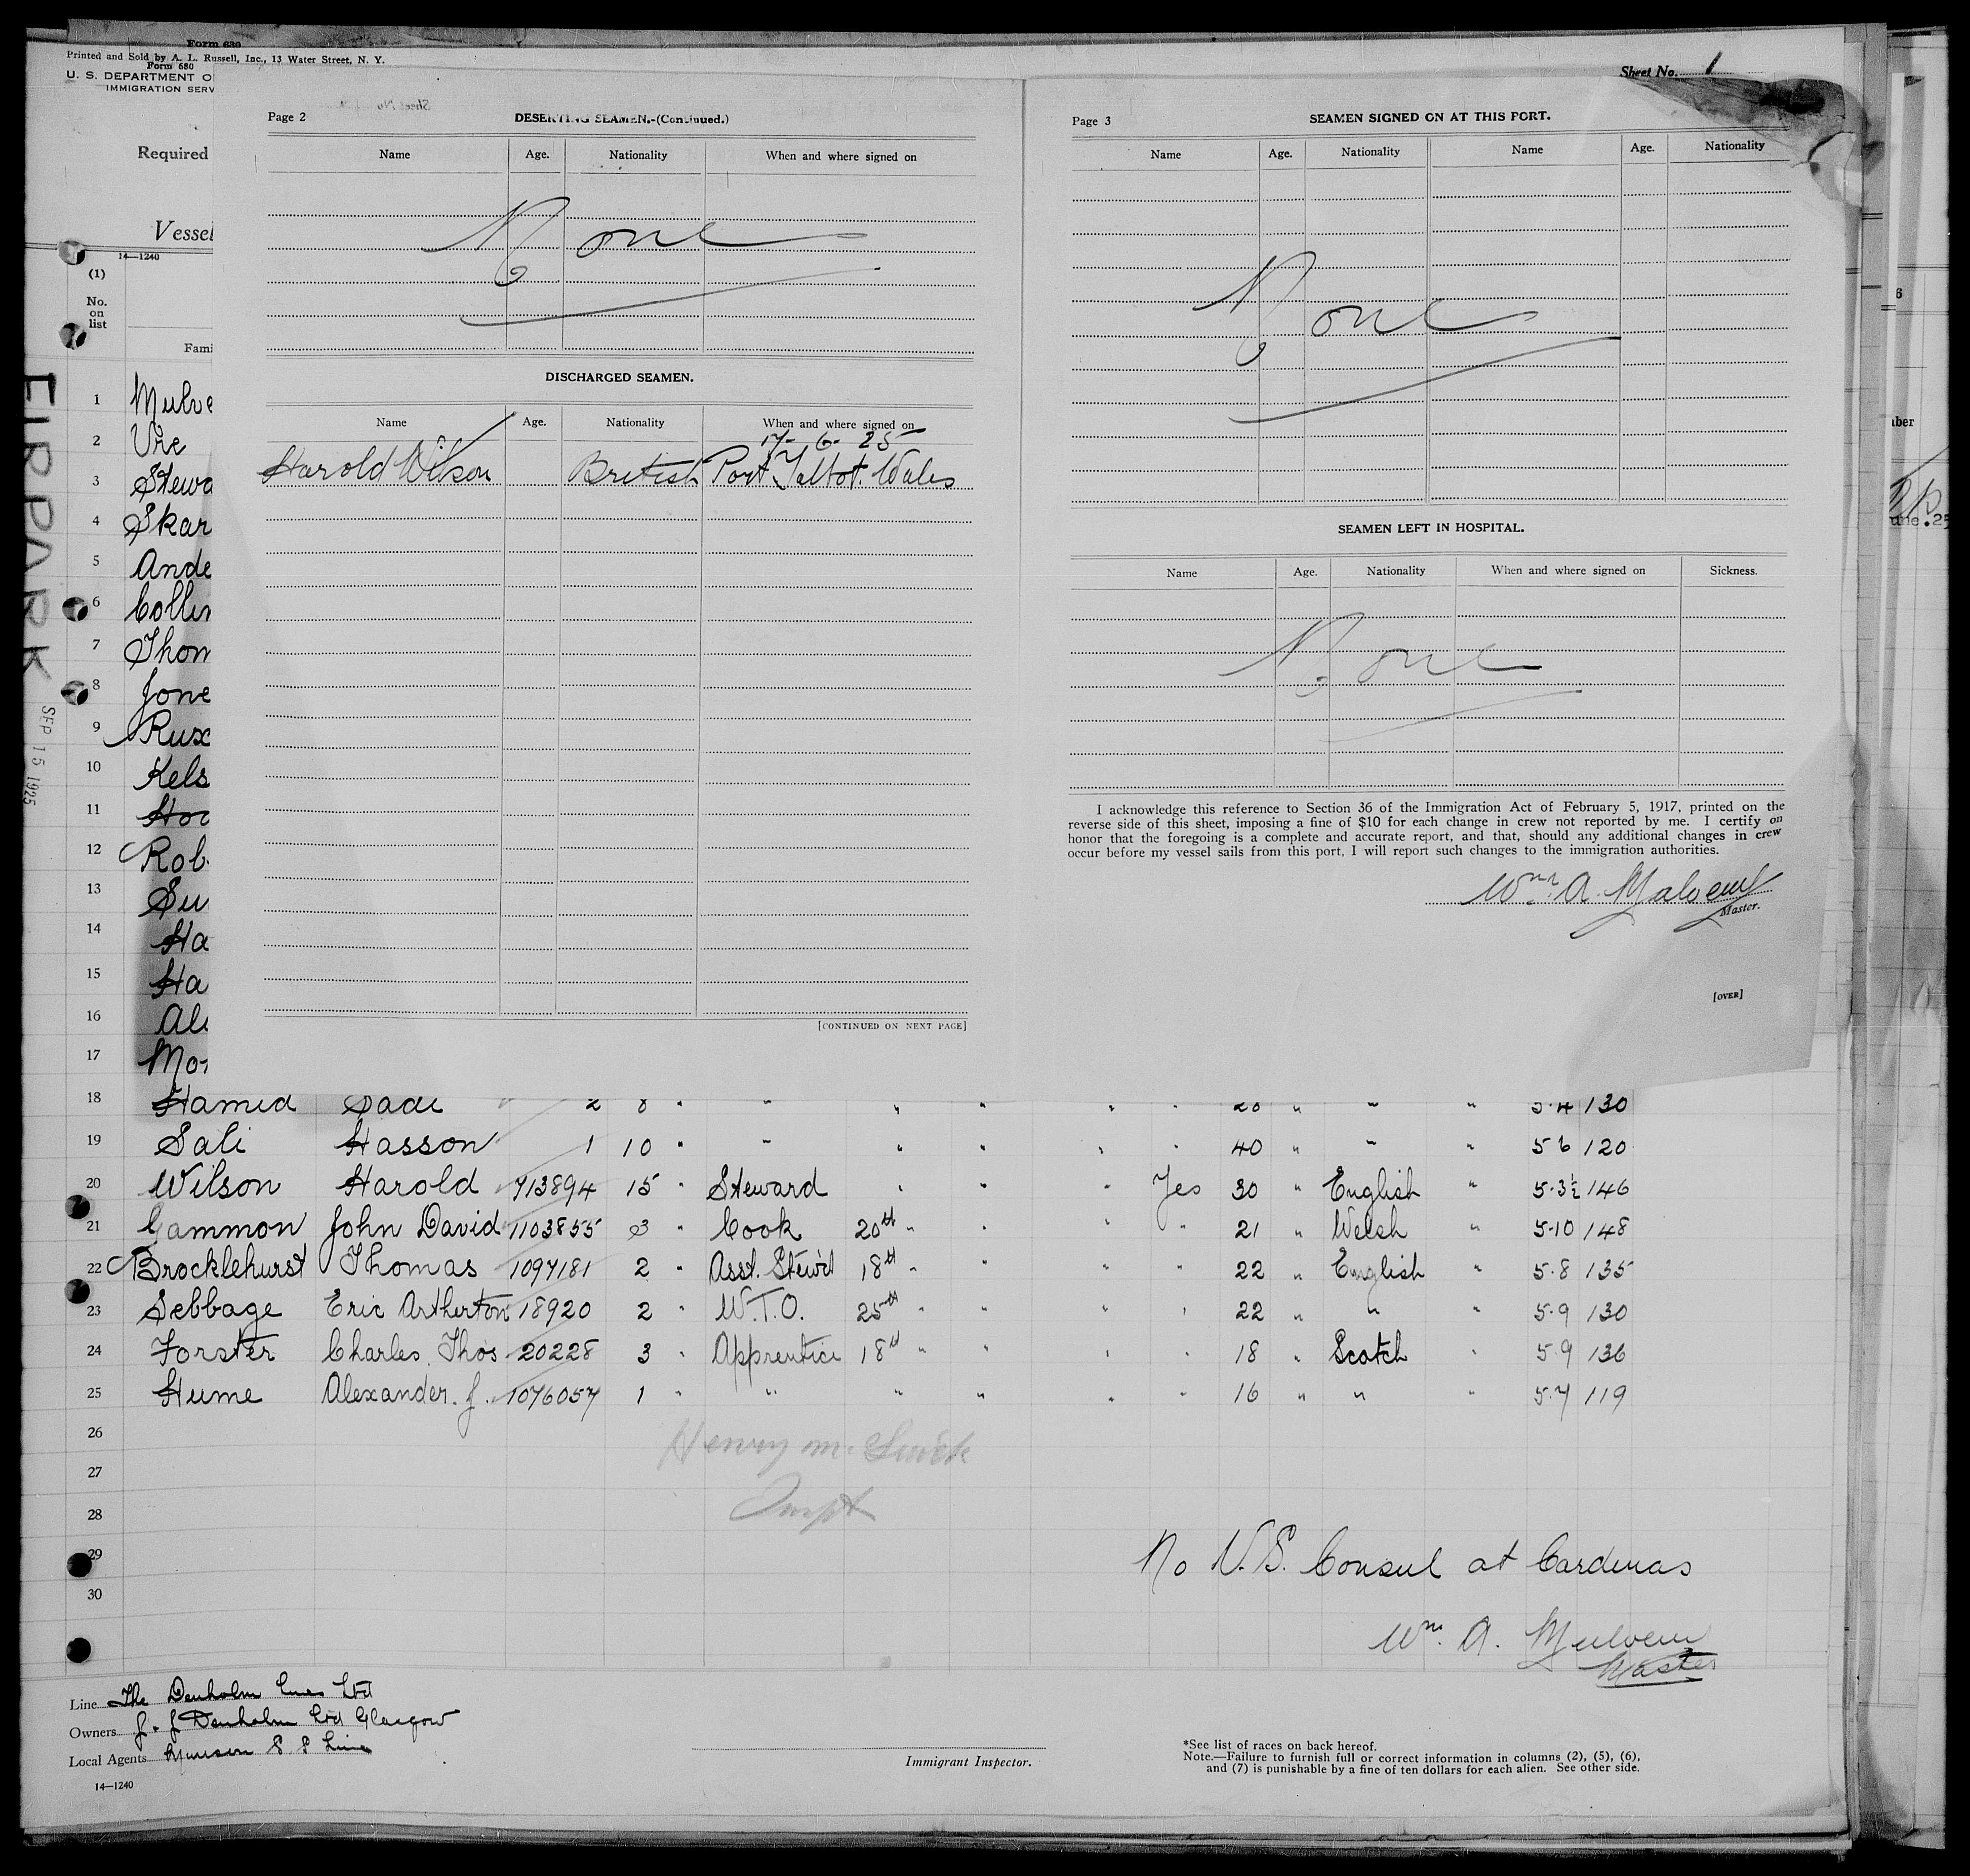 Form 680
Printed and Sold by A. L. Russell, Inc., 13 Water Street, N. Y.
Form 680
U. S. DEPARTMENT O
IMMIGRATION SERV
Sheet No. 1
Required
Vessel
14—1240
(1)
No.
on
list
Fami
FIRPARK
SEP 15 1925
1 Mulve
2 Ure
3 Stewa
4 Skar
5 Ande
6 Collin
7 Thom
8 Jone
9 Rux
10 Kels
11
12 Rob
13 Su
14 Ha
15 Ha
16 Al
17 Mo
Page 2 DESERTING SEAMEN.-(Continued.)
Name Age. Nationality When and where signed on
None
DISCHARGED SEAMEN.
Name Age. Nationality When and where signed on
17- 6- 25
Harold Wilson British Port Talbot. Wales
[CONTINUED ON NEXT PAGE]
Page 3 SEAMEN SIGNED ON AT THIS PORT.
Name Age. Nationality Name Age. Nationality
None
SEAMEN LEFT IN HOSPITAL.
Name Age. Nationality When and where signed on Sickness.
None
I acknowledge this reference to Section 36 of the Immigration Act of February 5, 1917, printed on the
reverse side of this sheet, imposing a fine of $10 for each change in crew not reported by me. I certify on
honor that the foregoing is a complete and accurate report, and that, should any additional changes in crew
occur before my vessel sails from this port, I will report such changes to the immigration authorities.
Wm A. Malvem
Master.
[OVER]
18 Hamed Sadi 2 8 " " " " " " 28 " " " 5·4 130
19 Sali Hasson 1 10 " " " " " " 40 " " " 5 6 120
20 Wilson Harold 713894 15 " Steward " " " Yes 30 " English " 5·3½ 146
21 Gammon John David 1103855 3 " Cook 20th " " " " 21 " Welsh " 5·10 148
22 Brocklehurst Thomas 1097181 2 " Asst. Stew'd 18th " " " " 22 " English " 5·8 135
23 Sebbage Eric Artherton 18920 2 " W.T.O. 25th " " " " 22 " " " 5·9 130
24 Forster Charles Thos 20228 3 " Apprentice 18th " " " " 18 " Scotch " 5 9 136
25 Hume Alexander. J. 1076057 1 " " " " " " 16 " " " 5·7 119
26
27
28
29
30
Henry M.
Inspt
No U.S. Consul at Cardenas
Wm. A. Mulvem
Master
Line The Denholm Lines Ltd
Owners J. J Denholm Ltd Glasgow
Local Agents Munson S S Line
14—1240
Immigrant Inspector.
*See list of races on back hereof.
Note.—Failure to furnish full or correct information in columns (2), (5), (6),
and (7) is punishable by a fine of ten dollars for each alien. See other side.